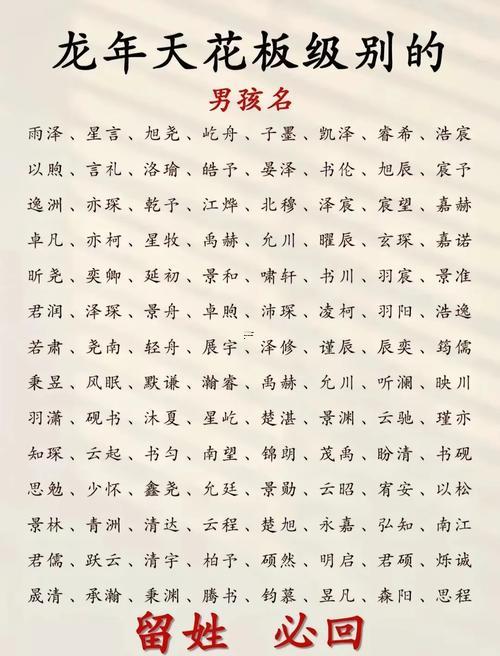 龙年天花板级别的
男孩名
雨泽、星言、旭尧、屹舟、子墨、凯泽、睿希、浩宸
以煦、言礼、洛瑜、皓予、晏泽、书伦、旭辰、宸予
逸洲、亦琛、乾予、江烨、北穆、泽宸、宸望、嘉赫
卓凡、亦柯、星牧、禹赫、允川、曜辰、玄琛、嘉诺
昕尧、奕卿、延初、景和、啸轩、书川、羽宸、景淮
君润、泽琛、景舟、卓煦、沛琛、凌柯、羽阳、浩逸
若肃、尧南、轻舟、展宇、泽修、谨辰、辰奕、筠儒
秉昱、风眠、默谦、瀚睿、禹赫、允川、听澜、映川
羽潇、砚书、沐夏、星屹、楚湛、景渊、云驰、瑾亦
知琛、云起、书匀、南望、锦朗、茂禹、盼清、书砚
思勉、少怀、鑫尧、允廷、景勋、云昭、宥安、以松
景林、青洲、清达、云程、楚旭、永嘉、弘知、南江
君儒、跃云、清宇、柏予、硕然、明启、君硕、烁诚
晟清、承瀚、秉渊、腾书、钧慕、昱凡、森阳、思程
留姓 必回